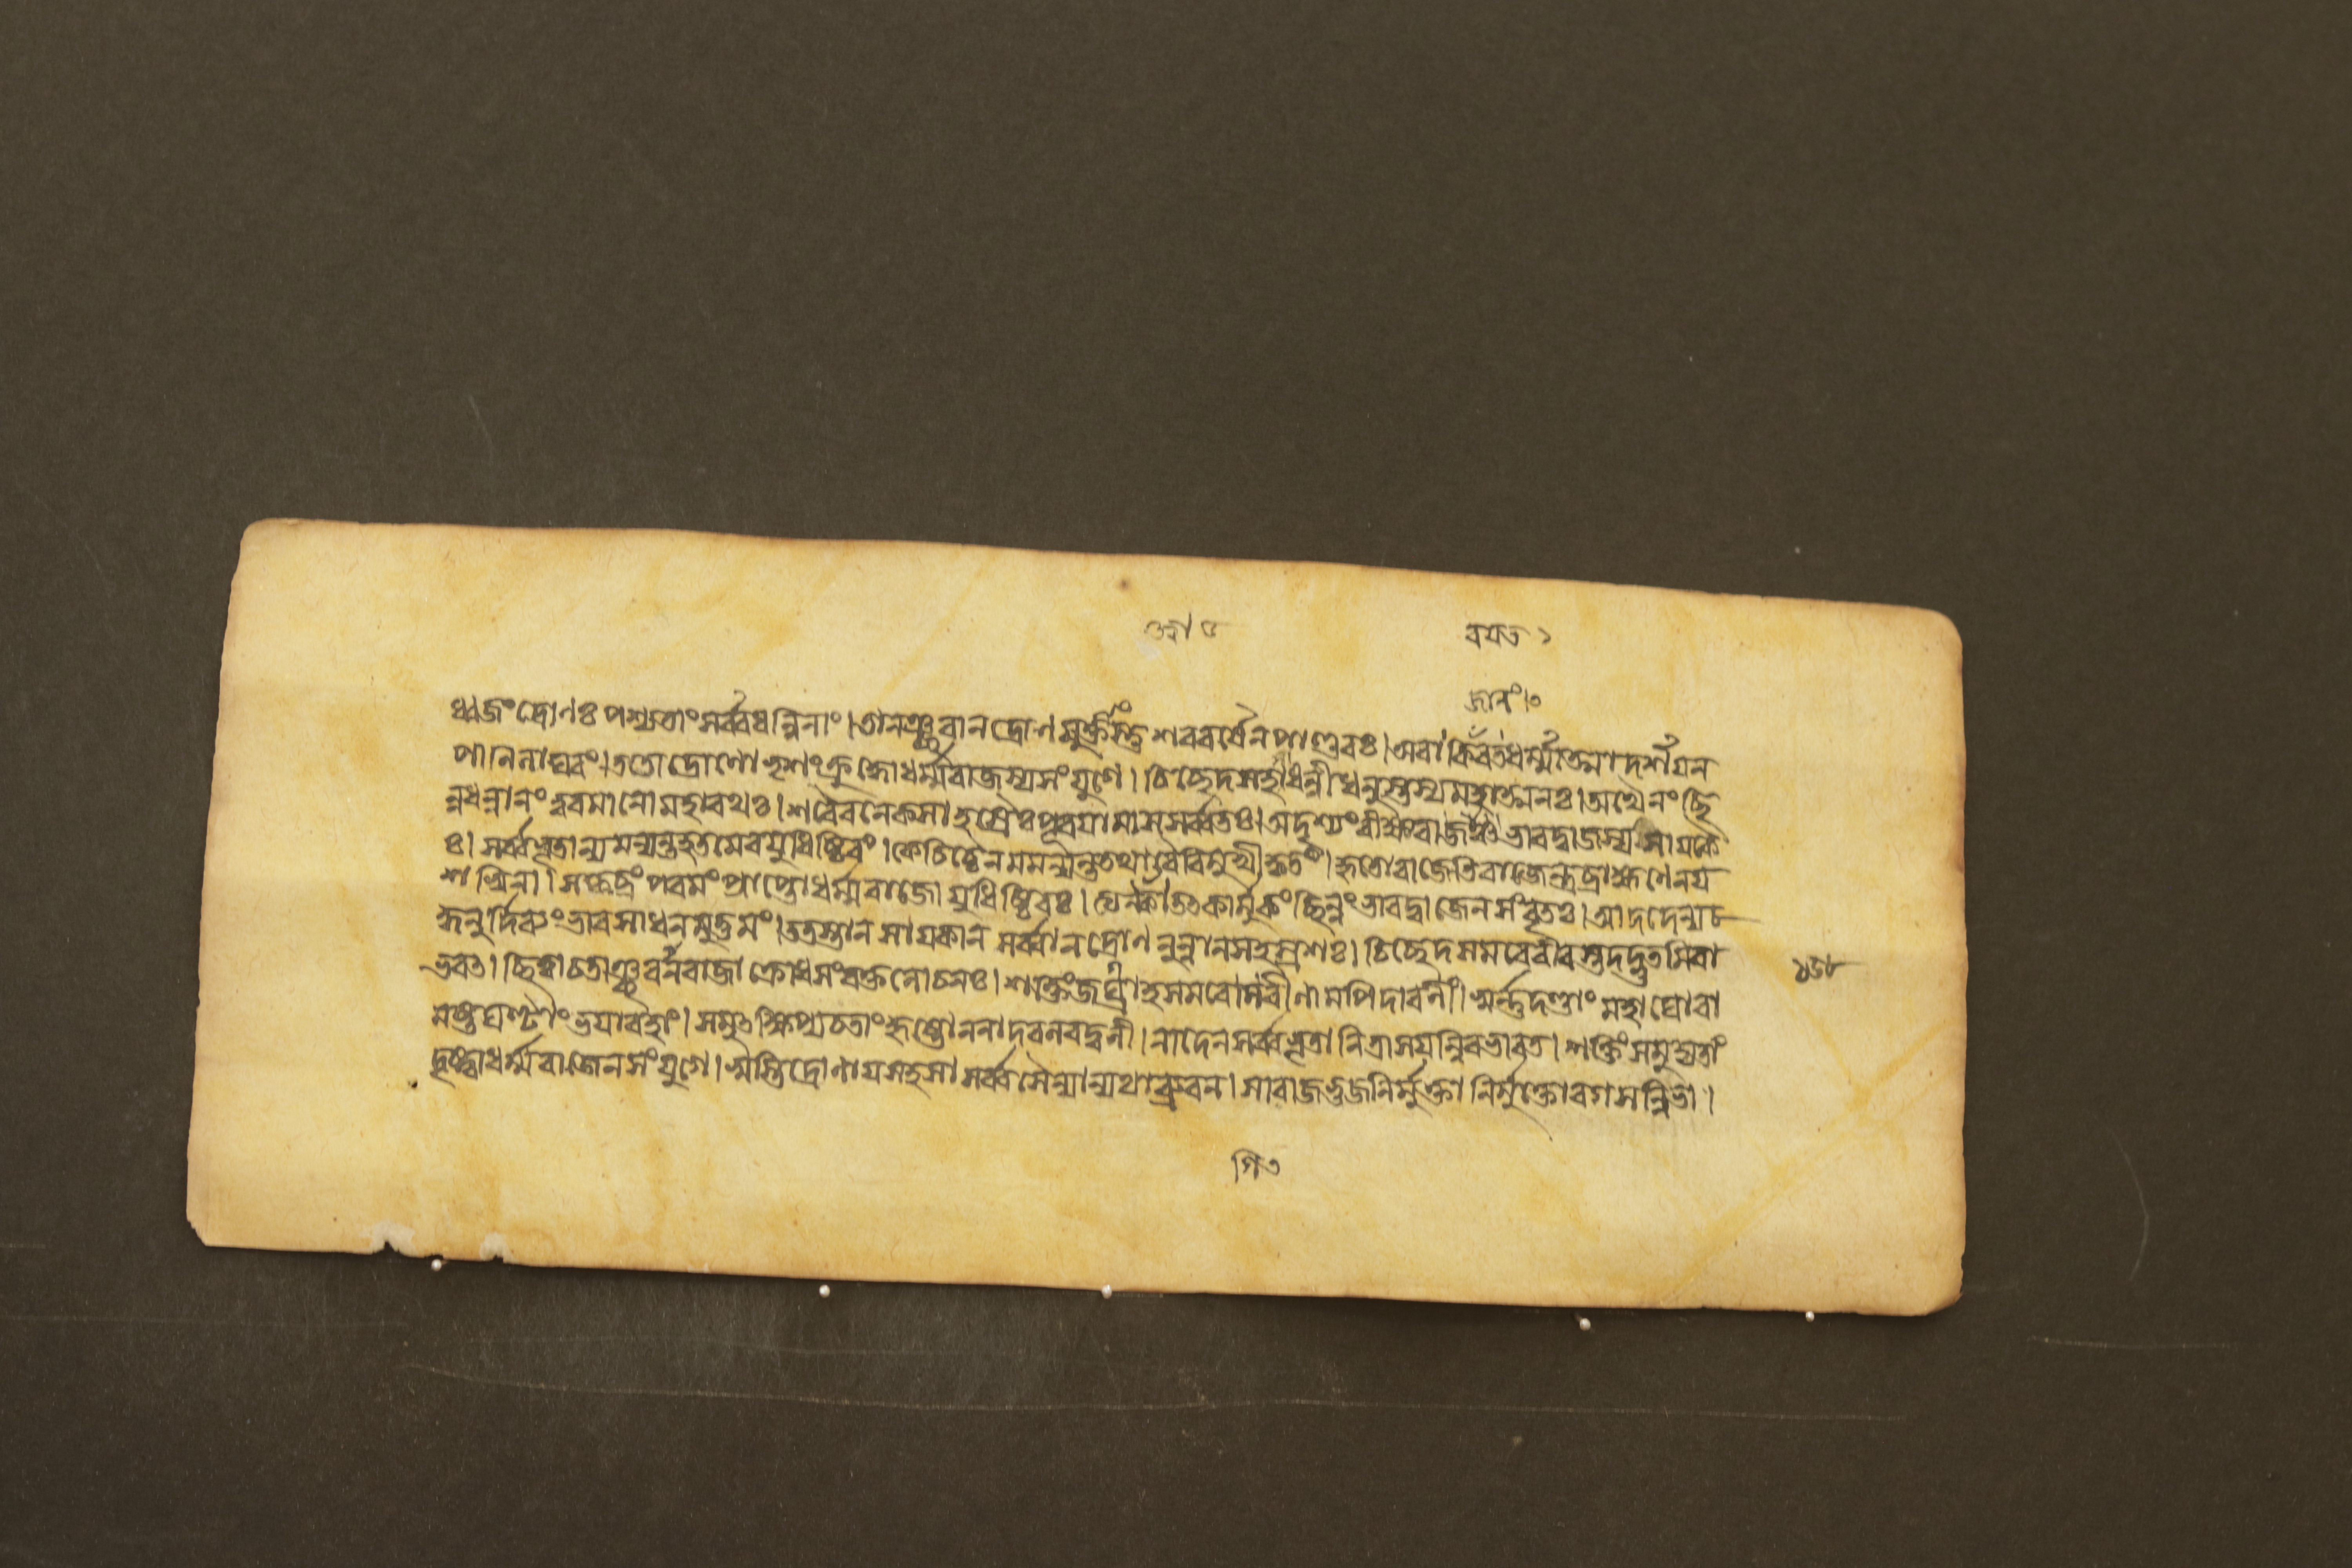 ধ্বজং দ্রোণঃ পশ্যতাং সর্ব্বধন্বিনাং। তানঞ্ছরান দ্রোণমুক্তাংস্তু শরবর্ষেন পাণ্ডবঃ। ধর্ম্মাত্মা দর্শয়ন
পানিলাঘবং। ততো দ্রোণো ভৃশং ক্রুদ্ধো ধর্ম্মরাজস্য সংযুগে। চিচ্ছেদ মহাধন্বী ধনুস্তস্য মহাত্মনঃ। অথৈনং ছি
ন্নধন্বানং ত্বরমানো মহারথঃ। শরৈরনেকসাহস্রৈঃ পূরয়ামাস সর্ব্বতঃ। অদৃশ্যং বীক্ষ্য ভারদ্বাজস্য সায়কৈ
ঃ। সর্ব্বভূতান্যমন্যন্ত হতমেব যুধিষ্ঠিরং। কেচিচ্চৈনমমন্যন্ত তথা বৈ বিমুখীকৃতং। হৃতো রাজেতি রাজেন্দ্র ব্রাহ্মণেন য
শস্বিনা। স কৃচ্ছ্রং পরমং প্রাপ্তো ধর্ম্মরাজো যুধিষ্ঠিরঃ। কার্মুকং ছিন্নং ভারদ্বাজেন সংবৃতঃ। আদদেন্যচ
দ্ধনুর্দিব্যং ভারসাধনমুত্তমং। ততস্তান সায়কান সর্ব্বান দ্রোণনুন্নান সহস্রশঃ। চিচ্ছেদ সমরে বীরস্তদদ্ভুতমিবা
ভবৎ। ছিত্ত্বা চ তাঞ্ছরান রাজা ক্রোধসংরক্তলোচনঃ। শক্তিং জগ্রাহ সমরে গিরীণামপি দারনীং। স্বর্ন্নদণ্ডাং মহাঘোরা
মষ্টঘণ্টাং ভয়াবহাং। সমুৎক্ষিপ্য চ তাং হৃষ্টো ননাদ বলবদ্বলী। নাদেন সর্ব্বভূতানি ত্রাসয়ন্নিব ভারত। শক্তিং সমুদ্যতাং
দৃষ্ট্বা ধর্ম্মরাজেন সংযুগে। স্বস্তি দ্রোণায় সহসা সর্ব্বসৈন্যান্যথাব্রুবন। সা রাজভুজনির্মুক্তা নির্মুক্তোরগসন্নিভা।